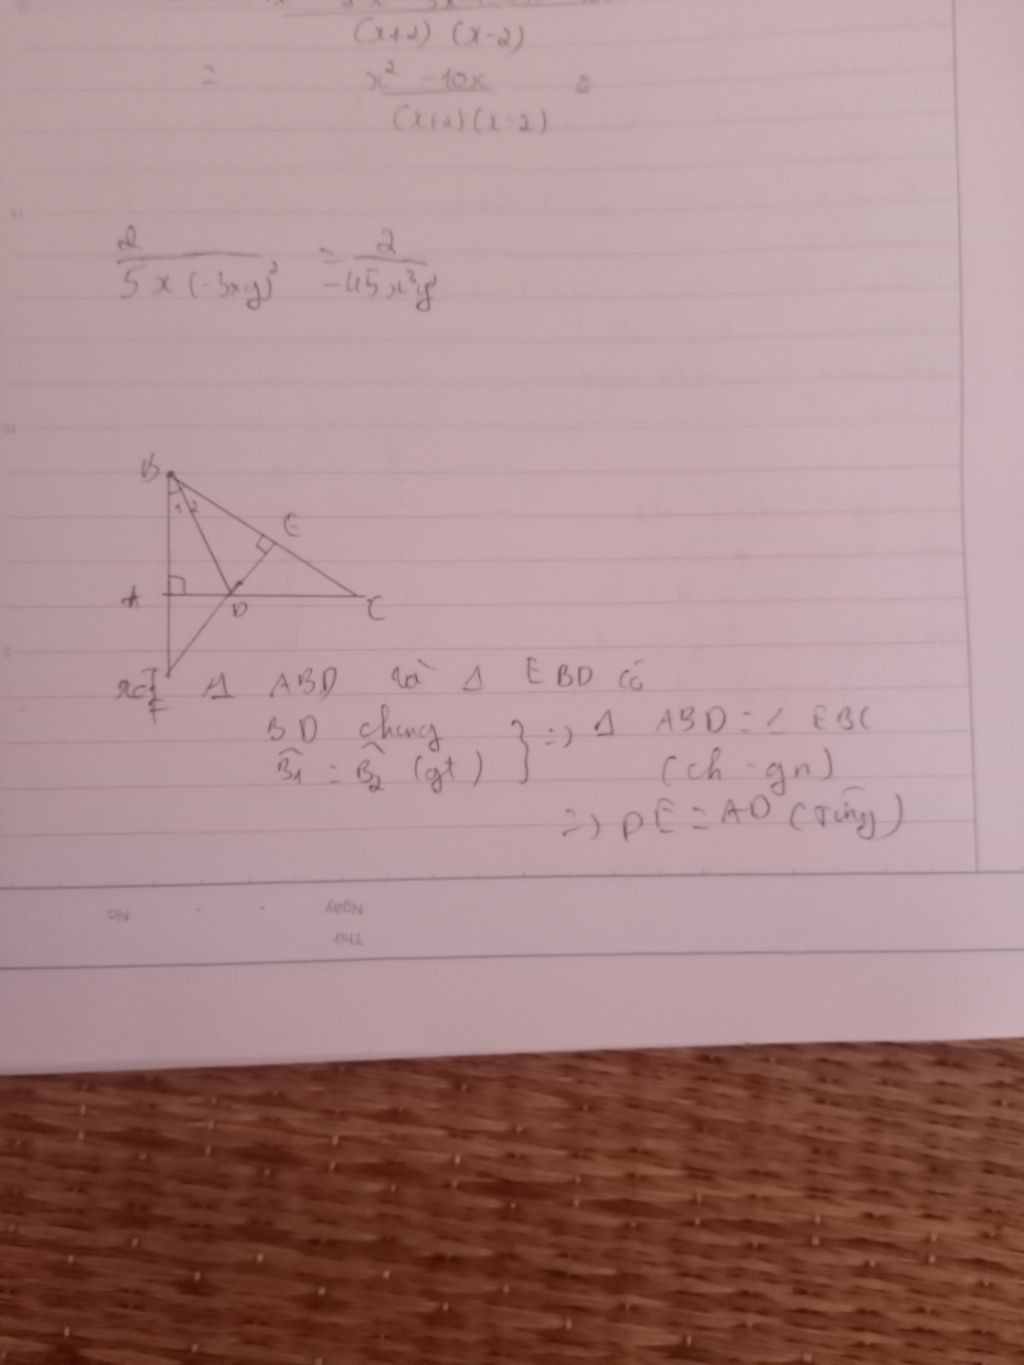 (x+2) (x-2)
= x² -10x
(x+2)(x-2)
2 = 2
5x(-3xy)² -45x³y²
B
1 2
E
A D C
F Δ ABD và Δ EBD có
BD chung } => Δ ABD = Δ EBC
B̂1 = B̂2 (gt) (ch - gn)
=> DE = AD (Tứng)
No. Ngày
Thứ